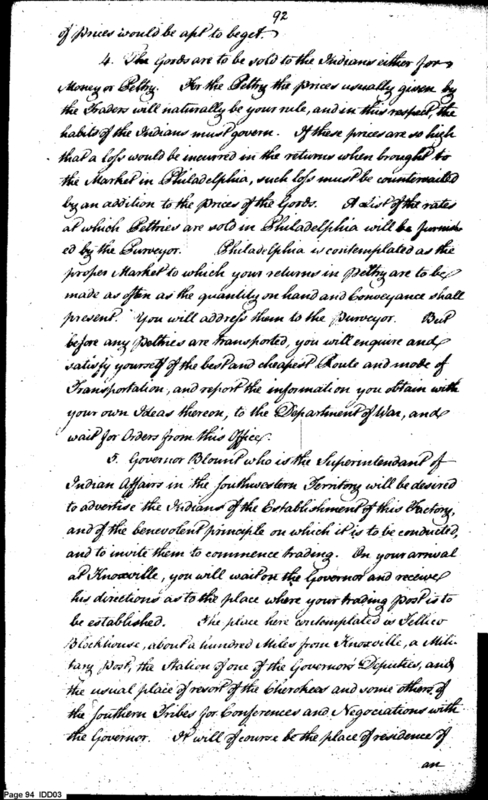 92
of prices would be apt to beget.
4. The Goods are to be sold to the Indians either for
Money or Peltry. For the Peltry the prices usually given by
the Traders will naturally be your rule, and in this respect, the
habits of the Indians must govern. If these prices are so high
that a loss would be incurred in the returns when brought to
the Market in Philadelphia, such loss must be countervailed
by an addition to the prices of the Goods. A List of the rates
at which Peltries are sold in Philadelphia will be furnish
ed by the Purveyor. Philadelphia is contemplated as the
proper Market to which your returns in peltry are to be
made as often as the quantity on hand and Conveyance shall
present. You will address them to the Purveyor. But
before any peltries are transported, you will enquire and
satisfy yourself of the best and cheapest Route and mode of
Transportation, and report the information you obtain with
your own Ideas thereon, to the Department of War, and
wait for Orders from this Office.
5. Governor Blount who is the Superintendant of
Indian Affairs in the Southwestern Territory will be desired
to advertise the Indians of the Establishment of this Factory,
and of the benevolent principle on which it is to be conducted,
and to invite them to commence trading. On your arrival
at Knoxville, you will wait on the Governor and receive
his directions as to the place where your trading post is to
be established. The place here contemplated is Tellico
Blockhouse, about a hundred Miles from Knoxville, a Mili-
tary Post, the Station of one of the Governors Deputies, and
the usual place of resort of the Cherokees and some others of
the Southern Tribes for Conferences and Negociations with
the Governor. It will of course be the place of residence of
an
Page 94 IDD03